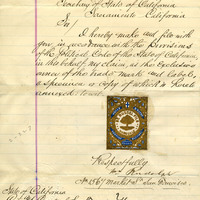 Secretary of State of California
Sacramento California
Sir/
I hereby make and file with
you in accordance with the Provisions
of the Political Code of the State of California
in this behalf my claim, as the exclusive
owner of the trade mark and labels,
a specimen or copy of which is hereto
annexed to wit
Respectfully
No 1567 Market St San Francisco
State of California